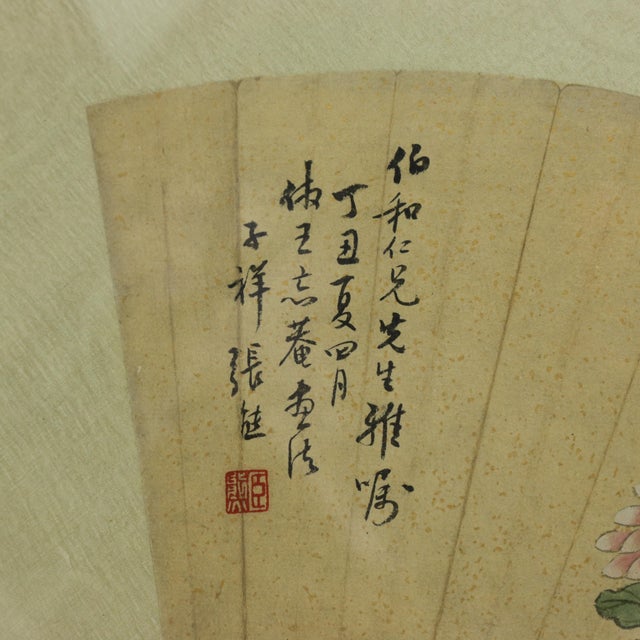 伯和仁兄先生雅嘱
丁丑夏四月
倣王忘菴画法
子祥張熊
臣熊